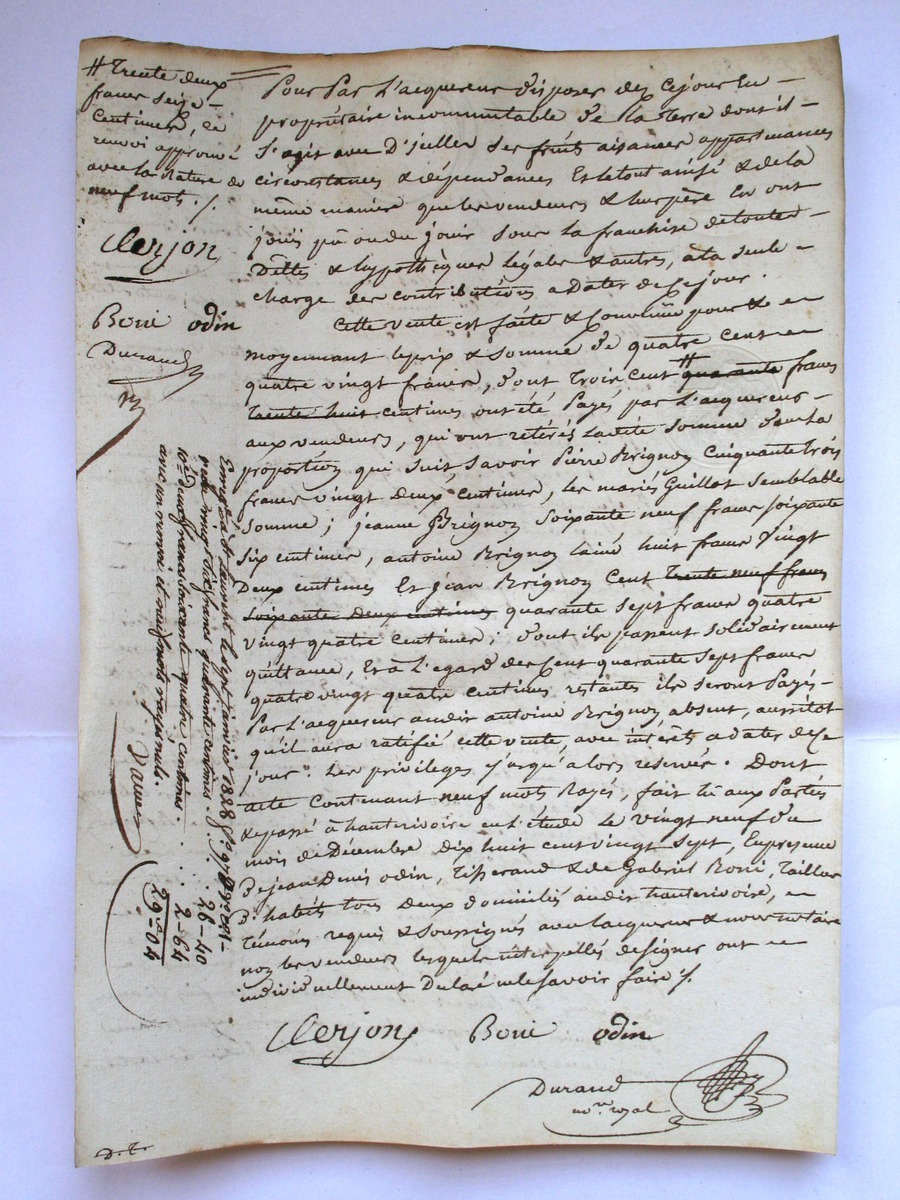 # Trente deux
francs seize
centimes, ce
renvoi approuvé
avec la rature de
neuf mots ./.
Clerjon
Boni odin
Durand
Pour Par L'acquereur disposer dez Cejour En
propriétaire incommutable de la Terre dont il
s'agit avec D'icelle ses fruits aisances appartenances
circonstances & dépendances Et letout ainsi & de la
même manière que les vendeurs & leur père En ont
jouis pû ou du jouir sous la franchise detoutes
Dettes & hypothèques légales & autres, ala seule
charge des contributions a Dater de Ce jour.
Cette vente est faite & Convenüe pour & en
moyennant leprix & somme de quatre cent
quatre vingt francs, dont Trois Cent # quarante francs
trente huit centimes ont été Payés par L'acquereur
aux vendeurs, qui ont retirés Ladite Somme dans la
proportion qui suit, Savoir Pierre Brignon Cinquante trois
francs vingt deux centimes, les mariés Guillot Semblable
Somme; jeanne Brignon Soixante neuf francs soixante
six centimes, antoine Brignon lainé huit francs vingt
Deux centimes Et jean Brignon Cent trente neuf francs
soixante deux centimes quarante sept francs quatre
vingt quatre centimes; dont ils passent solidairement
quittance, Et a L'egard des Cent quarante Sept francs
quatre vingt quatre centimes restants ils seront Payés
Par L'acquereur audit antoine Brignon absent, aussitot
qu'il aura ratifié cette vente, avec intérêts adater de Ce
jour. Les privileges jusqu'alors reservés. Dont
acte Contenant neuf mots Rayés, fait lû aux Parties
& passé à hauterivoire en L'étude Le vingt neuf du
mois de Décembre dix huit cent vingt Sept, En presence
de jean Denis odin, Tisserand & de Gabriel Boni, Tailleur
D'habits tous deux domiciliés audit hauterivoire,
Témoins requis & Soussignés avec lacquereur & nous notaire
non les vendeurs lesquels interpellés designer ont
individuellement Declaré ne le Savoir faire ./.
Clerjon Boni odin
Durand
no.re royal
Enregistré à St Laurent le sept janvier 1828
reçu vingt six francs quarante centimes. 26-40
10e Deux francs soixante quatre centimes. 2-64
avec un renvoi et neuf mots rayés nuls. 29-04
D.T.